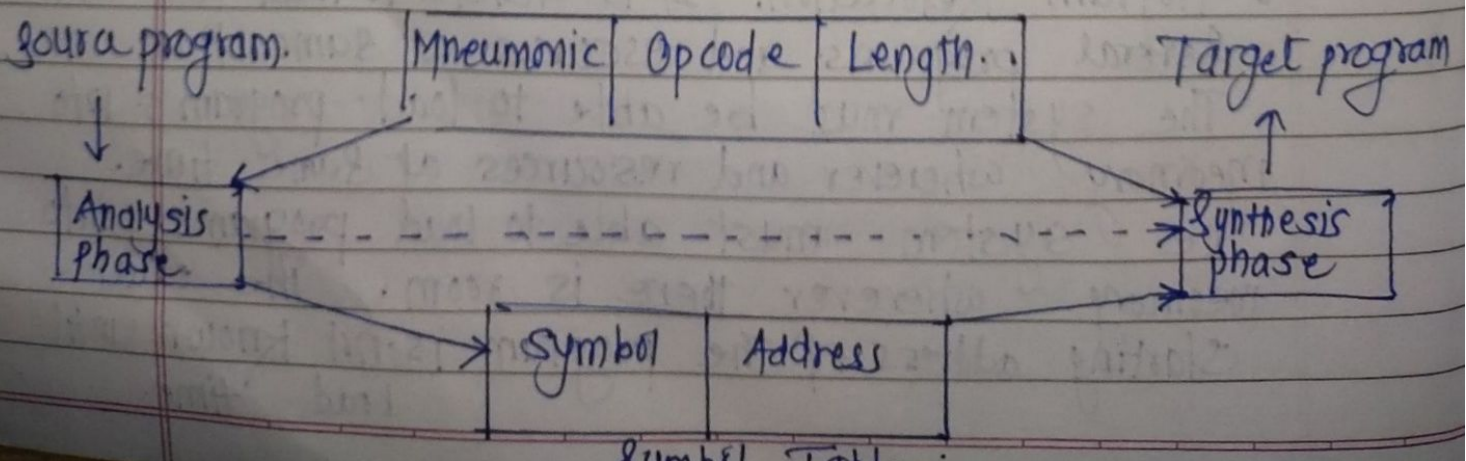 Soura program.
Mneumonic Opcode Length..
Target program
Analysis
phase.
Synthesis
phase
Symbol Address
Symbol